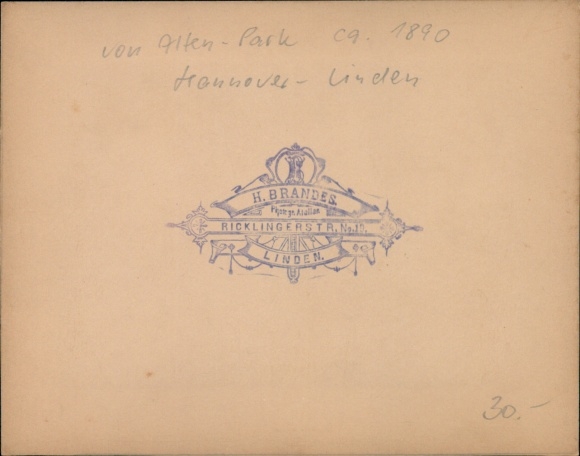 von Alten-Park ca. 1890
Hannover-Linden
H. BRANDES.
RICKLINGERSTR. No.
LINDEN.
30.-